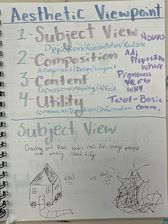 Aesthetic Viewpoint
1-Subject View Nouns
Depiction/Representation/Realism
2-Composition Adj
Arrangement/Design/Layout Preposition
Where
3-Content Pronouns
Expression/Meaning/Affect Verb
Why
4-Utility Text-Basic
Communication/Information Comm.
Subject View
Creating art that looks real. An image people
can easily identify.
vs